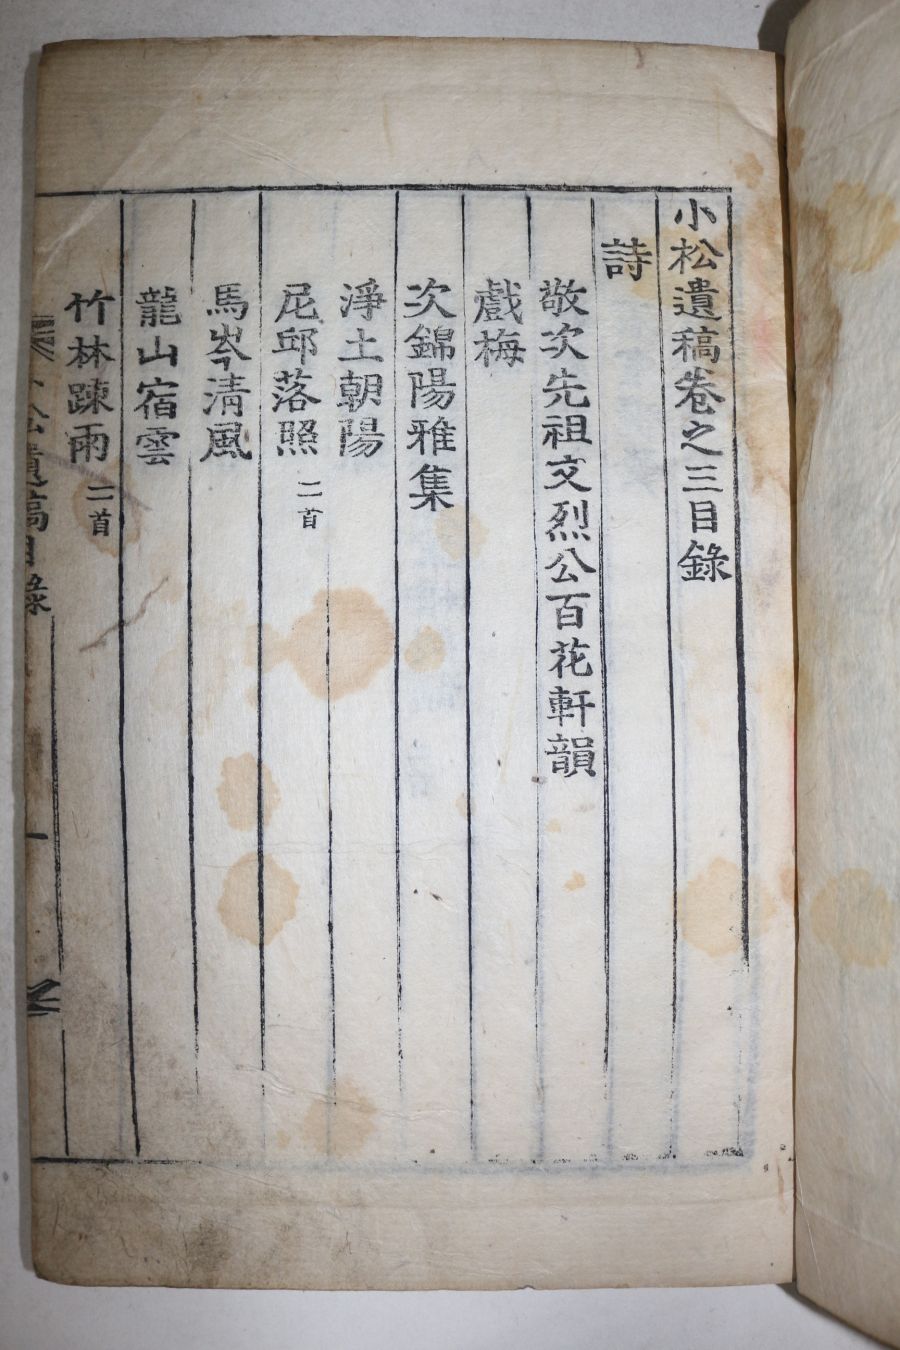 小松遺稿卷之三目錄
詩
敬次先祖文烈公百花軒韻
戲梅
次錦陽雅集
淨土朝陽
尼邱落照 二首
馬岑清風
龍山宿雲
竹林踈雨 二首
小松遺稿目錄
一